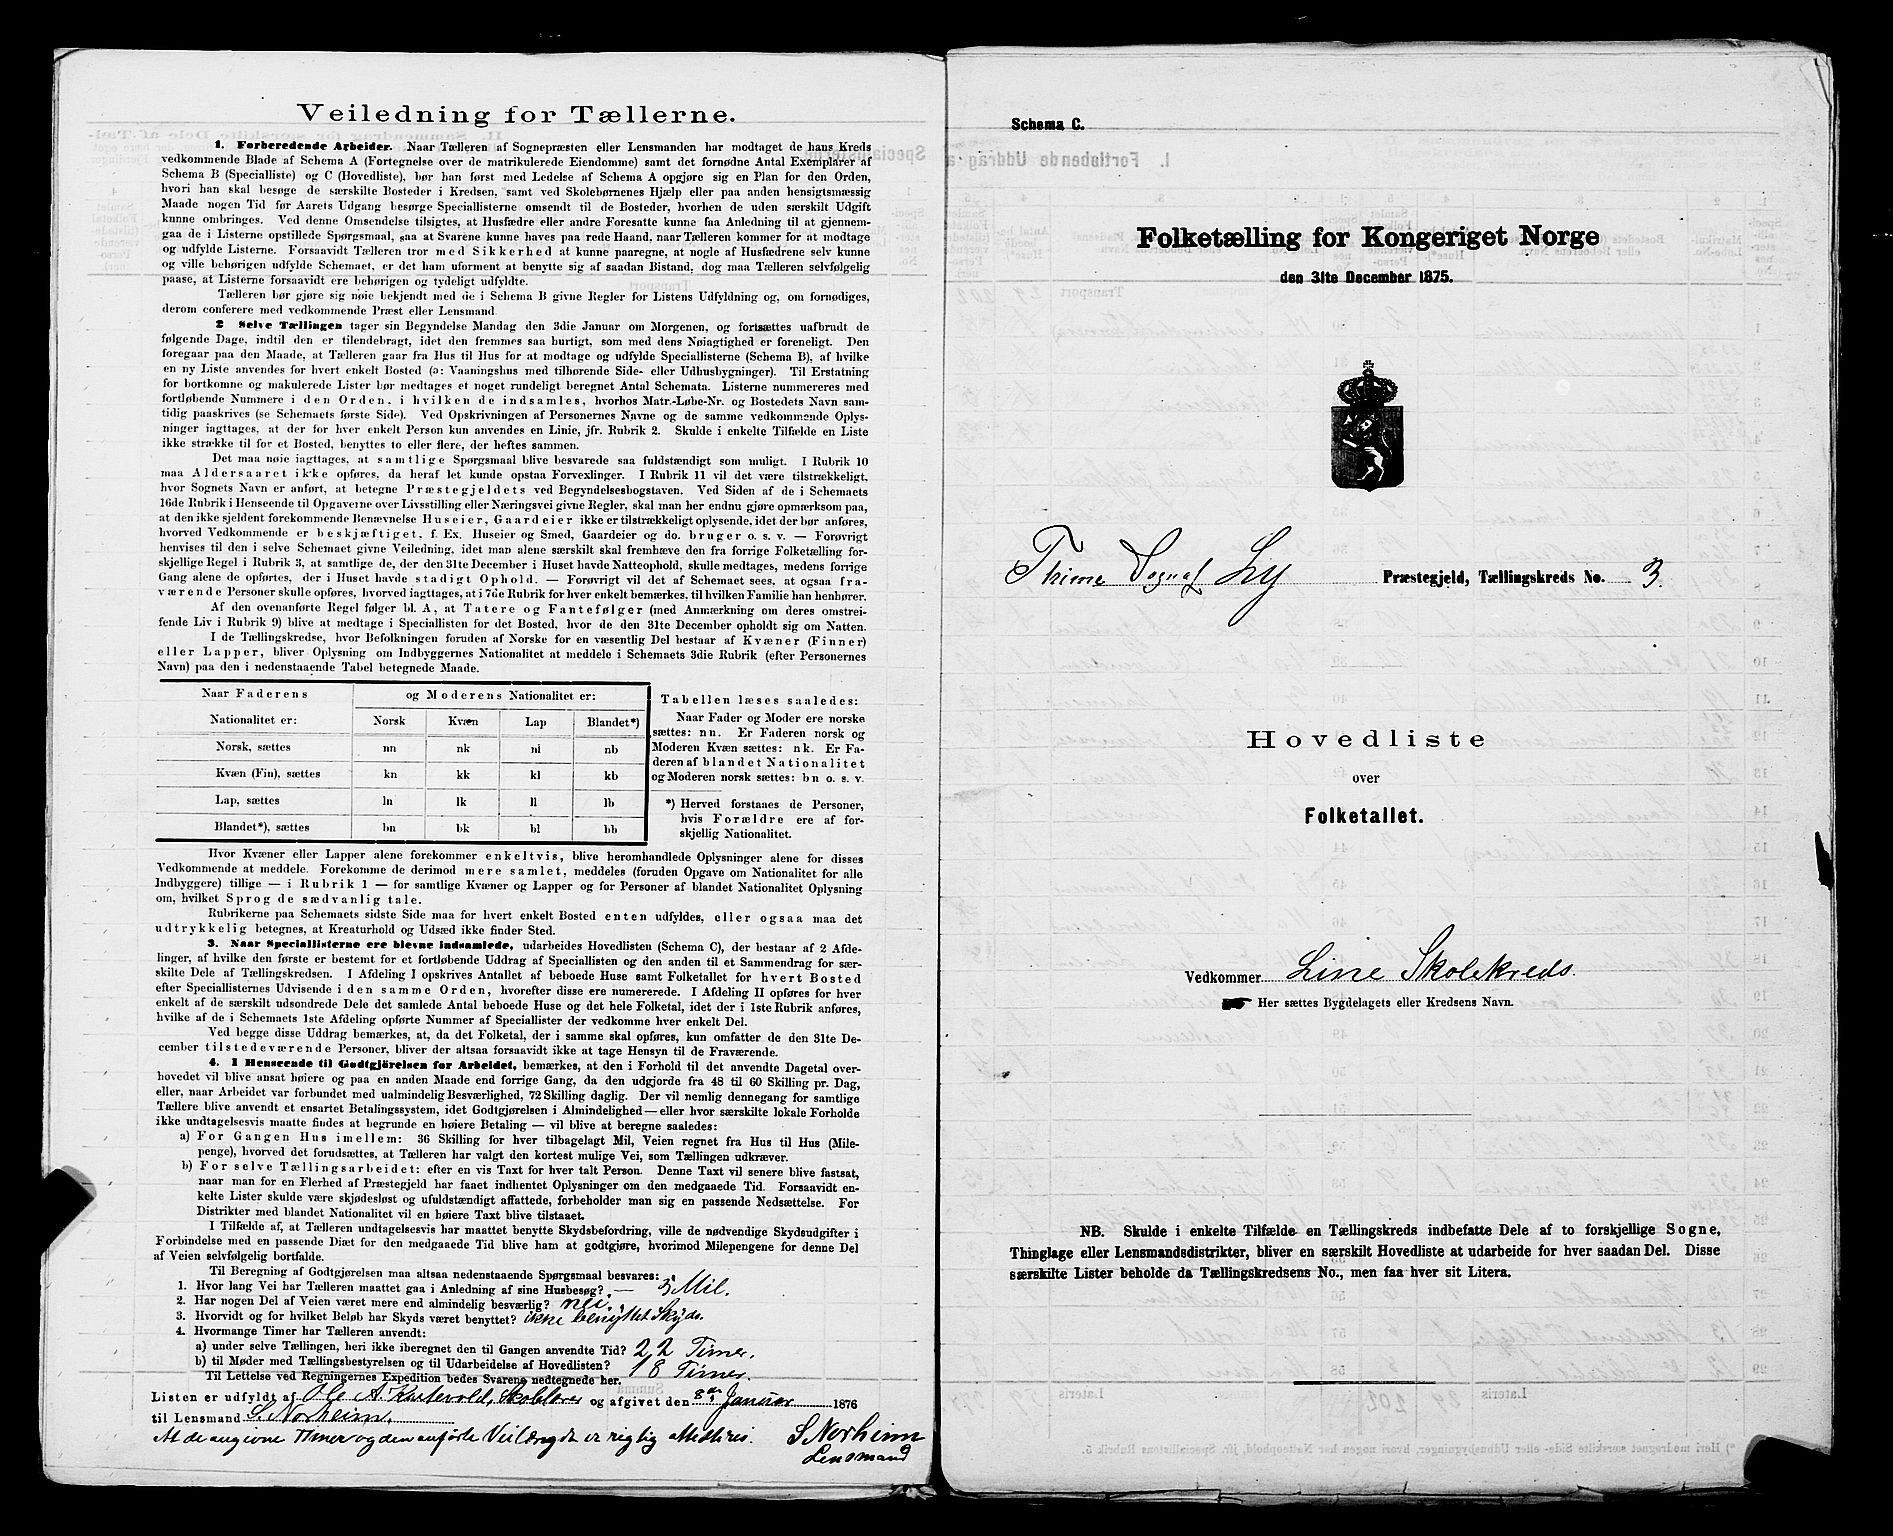 Veiledning for Tællerne.
1. Forberedende Arbeider. Naar Tælleren af Sognepræsten eller Lensmanden har modtaget de hans Kreds
vedkommende Blade af Schema A (Fortegnelse over de matrikulerede Eiendomme) samt det fornødne Antal Exemplarer af
Schema B (Specialliste) og C (Hovedliste), bør han først med Ledelse af Schema A opgjøre sig en Plan for den Orden,
hvori han skal besøge de særskilte Bosteder i Kredsen, samt ved Skolebørnenes Hjælp eller paa anden hensigtsmæssig
Maade nogen Tid før Aarets Udgang besørge Speciallisterne omsendt til de Bosteder, hvorhen de uden særskilt Udgift
kunne ombringes. Ved denne Omsendelse tilsigtes, at Husfædre eller andre Foresatte kunne faa Anledning til at gjennem-
gaa de i Listerne opstillede Spørgsmaal, saa at Svarene kunne haves paa rede Haand, naar Tælleren kommer for at modtage
og udfylde Listerne. Forsaavidt Tælleren tror med Sikkerhed at kunne paaregne, at nogle af Husfædrene selv kunne
og ville behørigen udfylde Schemaet, er det ham uforment at benytte sig af saadan Bistand, dog maa Tælleren selvfølgelig
paase, at Listerne forsaavidt ere behørigen og tydeligt udfyldte.
Tælleren bør gjøre sig nøie bekjendt med de i Schema B givne Regler for Listens Udfyldning og, om fornødiges,
derom conferere med vedkommende Præst eller Lensmand
2 Selve Tællingen tager sin Begyndelse Mandag den 3die Januar om Morgenen, og fortsættes uafbrudt de
følgende Dage, indtil den er tilendebragt, idet den fremmes saa hurtigt, som med dens Nøiagtighed er foreneligt. Den
foregaar paa den Maade, at Tælleren gaar fra Hus til Hus for at modtage og udfylde Speciallisterne (Schema B), af hvilke
en ny Liste anvendes for hvert enkelt Bosted (ɔ: Vaaningshus med tilhørende Side- eller Udhusbygninger). Til Erstatning
for bortkomne og makulerede Lister bør medtages et noget rundeligt beregnet Antal Schemata. Listerne nummereres med
fortløbende Nummere i den Orden, i hvilken de indsamles, hvorhos Matr.-Løbe-Nr. og Bostedets Navn sam-
tidig paaskrives (se Schemaets første Side). Ved Opskrivningen af Personernes Navne og de samme vedkommende Oplys-
ninger iagttages, at der for hver enkelt Person kun anvendes en Linie, jfr. Rubrik 2. Skulde i enkelte Tilfælde en Liste
ikke strække til for et Bosted, benyttes to eller flere, der heftes sammen.
Det maa nøie iagttages, at samtlige Spørgsmaal blive besvarede saa fuldstændigt som muligt. I Rubrik 10
maa Aldersaaret ikke opføres, da heraf let kunde opstaa Forvexlinger. I Rubrik 11 vil det være tilstrækkeligt,
hvor Sognets Navn er anført, at betegne Præstegjeldets ved Begyndelsesbogstaven. Ved Siden af de i Schemaets
16de Rubrik i Henseende til Opgaverne over Livsstilling eller Næringsvei givne Regler, skal man her endnu gjøre opmærksom paa,
at den ikke sjeldent forekommende Benævnelse Huseier, Gaardeier ikke er tilstrækkeligt oplysende, idet der bør anføres,
hvorved Vedkommende er beskjæftiget, f. Ex. Huseier og Smed, Gaardeier og do. bruger o. s. v. — Forøvrigt
henvises til den i selve Schemaet givne Veiledning, idet man alene særskilt skal fremhæve den fra forrige Folketælling for-
skjellige Regel i Rubrik 3, at samtlige de, der den 31te December i Huset havde Natteophold, skulle medtages, medens forrige
Gang alene de opførtes, der i Huset havde stadigt Ophold. — Forøvrigt vil det af Schemaet sees, at ogsaa fra-
værende Personer skulle opføres, hvorved iagttages, at i 7de Rubrik for hver enkelt bemærkes, til hvilken Familie han henhører.
Af den ovenanførte Regel følger bl. A, at Tatere og Fantefølger (med Anmærkning om deres omstrei-
fende Liv i Rubrik 9) blive at medtage i Speciallisten for det Bosted, hvor de den 31te December opholdt sig om Natten.
I de Tællingskredse, hvor Befolkningen foruden af Norske for en væsentlig Del bestaar af Kvæner (Finner)
eller Lapper, bliver Oplysning om Indbyggernes Nationalitet at meddele i Schemaets 3die Rubrik (efter Personernes
Navn) paa den i nedenstaaende Tabel betegnede Maade.
Naar Faderens og Moderens Nationalitet er:
Nationalitet er: Norsk Kvæn Lap Blandet*)
Norsk, sættes nn nk nl nb
Kvæn (Fin), sættes kn kk kl kb
Lap, sættes ln lk ll lb
Blandet*), sættes bn bk bl bb
Tabellen læses saaledes:
Naar Fader og Moder ere norske
sættes: nn. Er Faderen norsk og
Moderen Kvæn sættes: nk. Er Fa-
deren af blandet Nationalitet
og Moderen norsk sættes: bn o. s. v.
*) Herved forstaaes de Personer,
hvis Forældre ere af for-
skjellig Nationalitet.
Hvor Kvæner eller Lapper alene forekommer enkeltvis, blive heromhandlede Oplysninger alene for disses
Vedkommende at meddele. Forekomme de derimod mere samlet, meddeles (foruden Opgave om Nationalitet for alle
Indbyggere) tillige — i Rubrik 1 — for samtlige Kvæner og Lapper og for Personer af blandet Nationalitet Oplysning
om, hvilket Sprog de sædvanlig tale.
Rubrikerne paa Schemaets sidste Side maa for hvert enkelt Bosted enten udfyldes, eller ogsaa maa det
udtrykkelig betegnes, at Kreaturhold og Udsæd ikke finder Sted.
3. Naar Speciallisterne ere blevne indsamlede, udarbeides Hovedlisten (Schema C), der bestaar af 2 Afde-
linger, af hvilke den første er bestemt for et fortløbende Uddrag af Speciallisten og den anden til et Sammendrag for sær-
skilte Dele af Tællingskredsen. I Afdeling I opskrives Antallet af beboede Huse samt Folketallet for hvert Bosted
efter Speciallisternes Udvisende i den samme Orden, hvorefter disse ere numererede. I Afdeling II opføres for hver
enkelt af de særskilt udsondrede Dele det samlede Antal beboede Huse og det hele Folketal, idet der i 1ste Rubrik anføres,
hvilke af de i Schemaets 1ste Afdeling opførte Nummer af Speciallister der vedkomme hver enkelt Del.
Ved begge disse Uddrag bemærkes, at, da det Folketal, der i samme skal opføres, kun omfatter de den 31te De-
cember tilstedeværende Personer, bliver der altsaa forsaavidt ikke at tage Hensyn til de Fraværende.
4. I Henseende til Godtgjörelsen for Arbeidet, bemærkes, at den i Forhold til det anvendte Dagetal over-
hovedet vil blive ansat høiere og paa en anden Maade end forrige Gang, da den udgjorde fra 48 til 60 Skilling pr. Dag,
eller, naar Arbeidet var forbundet med ualmindelig Besværlighed, 72 Skilling daglig. Der vil nemlig dennegang for samtlige
Tællere blive anvendt et ensartet Betalingssystem, idet Godtgjørelsen i Almindelighed — eller hvor særskilte lokale Forholde
ikke undtagelsesvis maatte findes at begrunde en høiere Betaling — vil blive at beregne saaledes:
a) For Gangen Hus imellem: 36 Skilling for hver tilbagelagt Mil, Veien regnet fra Hus til Hus (Mile-
penge), hvorved det forudsættes, at Tælleren har valgt den kortest mulige Vei, som Tællingen udkræver.
b) For selve Tællingsarbeidet: efter en vis Taxt for hver talt Person. Denne Taxt vil senere blive fastsat,
naar man for en Flerhed af Præstegjeld har faaet indhentet Oplysninger om den medgaaede Tid. Forsaavidt en-
kelte Lister skulde være skjødesløst og ufuldstændigt affattede, forbeholder man sig en passende Nedsættelse. For
Distrikter med blandet Nationalitet vil en høiere Taxt blive tilstaaet.
I Tilfælde af, at Tælleren undtagelsesvis har maattet benytte Skydsbefordring, ville de nødvendige Skydsudgifter i
Forbindelse med en passende Diæt for den medgaaede Tid blive ham at godtgjøre, hvorimod Milepengene for denne Del
af Veien selvfølgelig bortfalde.
Til Beregning af Godtgjørelsen maa altsaa nedenstaaende Spørgsmaal besvares:
1. Hvor lang Vei har Tælleren maattet gaa i Anledning af sine Husbesøg? — 5 Mil.
2. Har nogen Del af Veien været mere end almindelig besværlig? nei.
3. Hvorvidt og for hvilket Beløb har Skyds været benyttet? ikke benyttet Skyds.
4. Hvormange Timer har Tælleren anvendt:
a) under selve Tællingen, heri ikke iberegnet den til Gangen anvendte Tid? 22 Timer.
b) til Møder med Tællingsbestyrelsen og til Udarbeidelse af Hovedlisten? 18 Timer.
Til Lettelse ved Regningernes Expedition bedes Svarene nedtegnede her.
Listen er udfyldt af Ole A. Skolelærer og afgivet den 8de Januar 1876
til Lensmand S. Norheim.
At de angivne Timer og den anførte Veilængde er rigtig attesteres. S Norheim
Lensmand
Schema C.
Folketælling for Kongeriget Norge
den 31te December 1875.
Thime Sogn af Ly Præstegjeld, Tællingskreds No. 3.
Hovedliste
over
Folketallet.
Vedkommer Line Skolekreds.
Her sættes Bygdelagets eller Kredsens Navn.
NB. Skulde i enkelte Tilfælde en Tællingskreds indbefatte Dele af to forskjellige Sogne,
Thinglage eller Lensmandsdistrikter, bliver en særskilt Hovedliste at udarbeide for hver saadan Del. Disse
særskilte Lister beholde da Tællingskredsens No., men faa hver sit Litera.